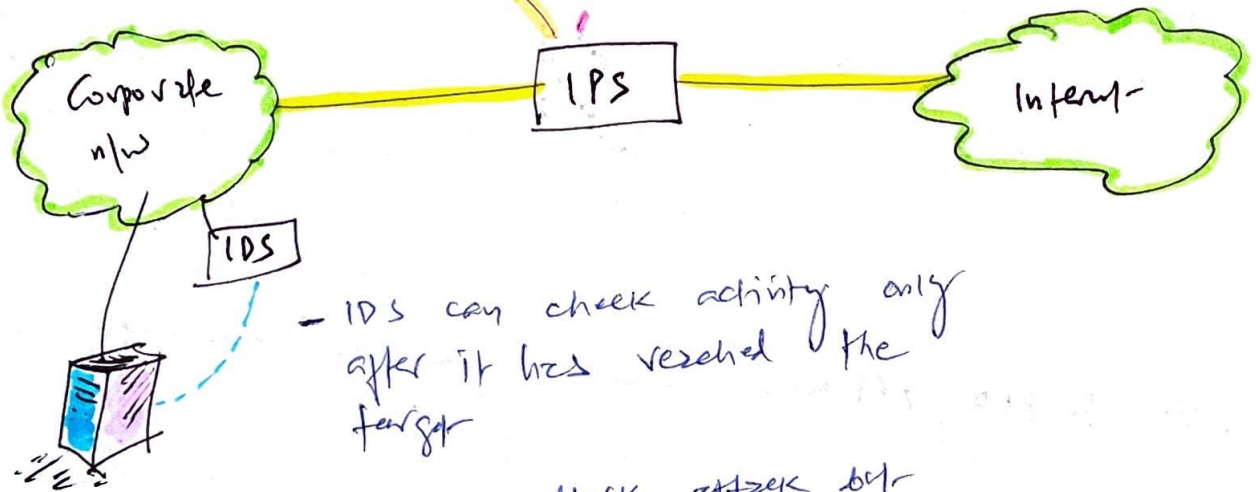 Corporate
n/w
IPS
Internt
IDS
- IDS can check activity only
after it has reached the
target
attack